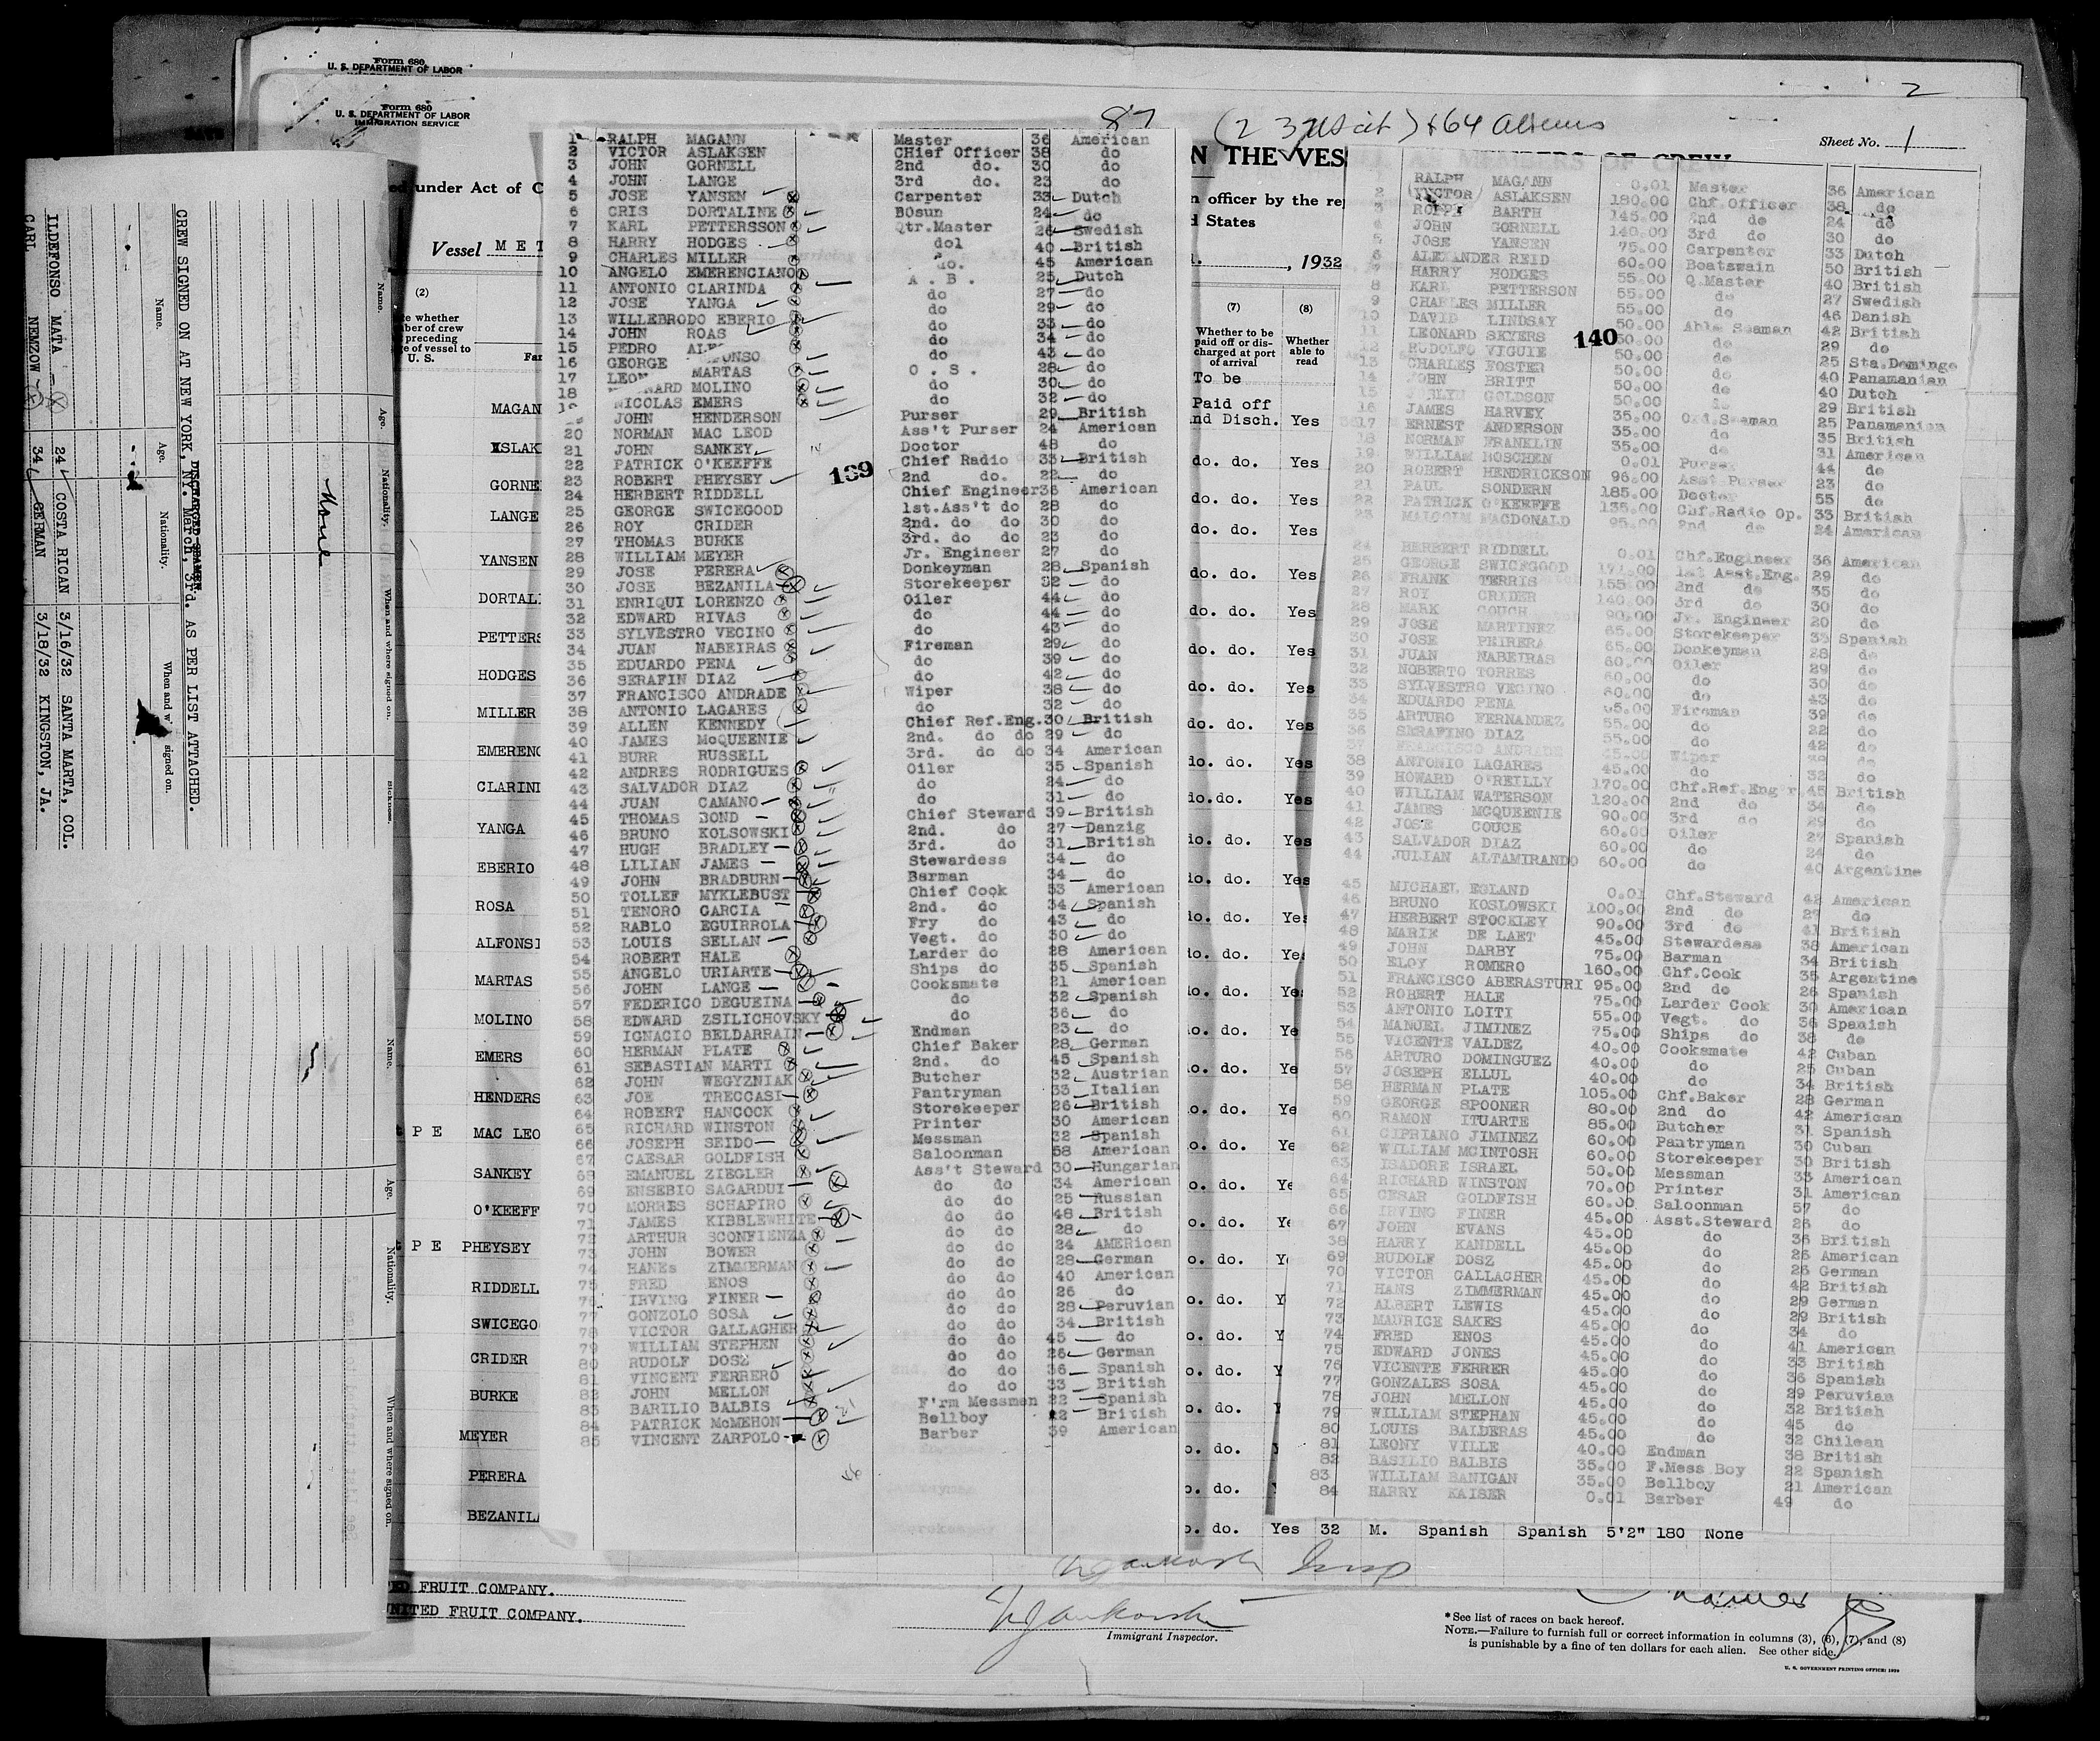 Form 680
U. S. DEPARTMENT OF LABOR
Form 680
U. S. DEPARTMENT OF LABOR
IMMIGRATION SERVICE
2
87 (23 US cit) + 64 Aliens
Sheet No. 1
N THE VES
MEMBERS OF CREW
under Act of C
n officer by the re
d States
Vessel MET
, 1932
CREW SIGNED ON AT NEW YORK, NY. March, 3rd. AS PER LIST ATTACHED.
Name. Age. Nationality. When and where signed on.
ILDEFONSO MATA 24 COSTA RICAN 3/16/32 SANTA MARTA, COL.
CARL NEMZOW 34 GERMAN 3/18/32 KINGSTON, JA.
None
Name. Age. Nationality. When and where signed on. Sickness.
Name. Age. Nationality. When and where signed on.
(2)
ber of crew
preceding
e of vessel to
U. S.
MAGAN
GORNE
LANGE
YANSEN
DORTAL
PETTERS
HODGES
MILLER
EMERENC
CLARIND
YANGA
EBERIO
ROSA
ALFONSI
MARTAS
MOLINO
EMERS
HENDERS
P E MAC LEO
SANKEY
O'KEEFF
P E PHEYSEY
RIDDELL
SWICEGO
CRIDER
BURKE
MEYER
PERERA
BEZANIL
1 RALPH MAGANN Master 36 American
2 VICTOR ASLAKSEN CHief Officer 38 do
3 JOHN GORNELL 2nd do. 30 do
4 JOHN LANGE 3rd do. 23 do
5 JOSE YANSEN Carpenter 33 Dutch
6 CRIS DORTALINE BOsun 24 do
7 KARL PETTERSSON Qtr.Master 26 Swedish
8 HARRY HODGES dol 40 British
9 CHARLES MILLER do. 45 American
10 ANGELO EMERENCIANO A . B . 25 Dutch
11 ANTONIO CLARINDA do 27 do
12 JOSE YANGA do 29 do
13 WILLEBRODO EBERIO do 33 do
14 JOHN ROAS do 34 do
15 PEDRO AL FONSO do 43 do
16 GEORGE MARTAS O . S . 28 do
17 LEON ARD MOLINO do 30 do
18 NICOLAS EMERS do 32 do
JOHN HENDERSON Purser 29 British
20 NORMAN MAC LEOD Ass't Purser 24 American
21 JOHN SANKEY Doctor 48 do
22 PATRICK O'KEEFFE Chief Radio 33 British
23 ROBERT PHEYSEY 2nd do. 22 do
24 HERBERT RIDDELL Chief Engineer 36 American
25 GEORGE SWICEGOOD 1st.Ass't do 28 do
26 ROY CRIDER 2nd. do do 30 do
27 THOMAS BURKE 3rd. do do 23 do
28 WILLIAM MEYER Jr. Engineer 27 do
29 JOSE PERERA Donkeyman 28 Spanish
30 JOSE BEZANILA Storekeeper 32 do
31 ENRIQUI LORENZO Oiler 44 do
32 EDWARD RIVAS do 44 do
33 SYLVESTRO VECINO do 43 do
34 JUAN NABEIRAS Fireman 29 do
35 EDUARDO PENA do 39 do
36 SERAFIN DIAZ do 42 do
37 FRANCISCO ANDRADE Wiper 38 do
38 ANTONIO LAGARES do 32 do
39 ALLEN KENNEDY Chief Ref.Eng. 30 British
40 JAMES McQUEENIE 2nd. do do 29 do
41 BURR RUSSELL 3rd. do do 34 American
42 ANDRES RODRIGUES Oiler 35 Spanish
43 SALVADOR DIAZ do 24 do
44 JUAN CAMANO do 31 do
45 THOMAS BOND Chief Steward 39 British
46 BRUNO KOLSOWSKI 2nd. do 27 Danzig
47 HUGH BRADLEY 3rd. do 31 British
48 LILIAN JAMES Stewardess 34 do
49 JOHN BRADBURN Barman 34 do
50 TOLLEF MYKLEBUST Chief Cook 53 American
51 TENORO GARCIA 2nd. do 34 Spanish
52 RABLO EGUIRROLA Fry do 43 do
53 LOUIS SELLAN Vegt. do 30 do
54 ROBERT HALE Larder do 28 American
55 ANGELO URIARTE Ships do 35 Spanish
56 JOHN LANGE Cooksmate 21 American
57 FEDERICO DEGUEINA do 32 Spanish
58 EDWARD ZSILICHOVSKY do 36 do
59 IGNACIO BELDARRAIN Endman 23 do
60 HERMAN PLATE Chief Baker 28 German
61 SEBASTIAN MARTI 2nd. do 45 Spanish
62 JOHN WEGYZNIAK Butcher 32 Austrian
63 JOE TRECCASI Pantryman 33 Italian
64 ROBERT HANCOCK Storekeeper 26 British
65 RICHARD WINSTON Printer 30 American
66 JOSEPH SEIDO Messman 32 Spanish
67 CAESAR GOLDFISH Saloonman 58 American
68 EMANUEL ZIEGLER Ass't Steward 30 Hungarian
69 ENSEBIO SAGARDUI do do 34 American
70 MORRES SCHAPIRO do do 25 Russian
71 JAMES KIBBLEWHITE do do 48 British
72 ARTHUR SCONFIENZA do do 28 do
73 JOHN BOWER do do 24 AMERican
74 HANEs ZIMMERMAN do do 28 German
75 FRED ENOS do do 40 American
76 IRVING FINER do do 26 do
77 GONZOLO SOSA do do 28 Peruvian
78 VICTOR GALLAGHER do do 34 British
79 WILLIAM STEPHEN do do 45 do
80 RUDOLF DOSZ do do 26 German
81 VINCENT FERRERO do do 36 Spanish
82 JOHN MELLON do do 33 British
83 BARILIO BALBIS F'rm Messmen 22 Spanish
84 PATRICK McMEHON Bellboy 22 British
85 VINCENT ZARPOLO Barber 39 American
139
(7) (8)
Whether to be paid off or discharged at port of arrival
Whether able to read
To be
Paid off
nd Disch. Yes
do. do. Yes
140
RALPH MAGANN 0.01 Master 36 American
2 VICTOR ASLAKSEN 180.00 Chf.Officer 38 do
3 BARTH 145.00 2nd do 24 do
4 JOHN GORNELL 140.00 3rd do 30 do
5 JOSE YANSEN 75.00 Carpenter 33 Dutch
6 ALEXANDER REID 60.00 Boatswain 50 British
7 HARRY HODGES 55.00 Q.Master 40 British
8 KARL PETTERSON 55.00 do 27 Swedish
9 CHARLES MILLER 55.00 do 46 Danish
10 DAVID LINDSAY 50.00 Able Seaman 42 British
11 LEONARD SKYERS 50.00 do 29 do
12 RUDOLFO VIGUIE 50.00 do 25 Sta.Domingo
13 CHARLES FOSTER 50.00 do 40 Panamanian
14 JOHN BRITT 50.00 do 40 Dutch
15 GOLDSON 50.00 do 29 British
16 JAMES HARVEY 35.00 Ord.Seaman 25 Panamanian
17 ERNEST ANDERSON 35.00 do 35 British
18 NORMAN FRANKLIN 35.00 do 31 American
19 WILLIAM BOSCHEN 0.01 Purser 44 do
20 ROBERT HENDRICKSON 96.00 Asst Purser 23 do
21 PAUL SONDERN 185.00 Doctor 55 do
22 PATRICK O'KEEFFE 135.00 Chf.Radio Op. 33 British
23 MALCOLM MACDONALD 95.00 2nd do 24 American
24 HERBERT RIDDELL 0.01 Chf.Engineer 36 American
25 GEORGE SWICEGOOD 171.00 1st Asst.Eng. 29 do
26 FRANK TERRIS 155.00 2nd do 35 do
27 ROY CRIDER 140.00 3rd do 30 do
28 MARK COUCH 90.00 Jr. Engineer 20 do
29 JOSE MARTINEZ 65.00 Storekeeper 33 Spanish
30 JOSE PEIRERA 65.00 Donkeyman 28 do
31 JUAN NABEIRAS 60.00 Oiler 29 do
32 NOBERTO TORRES 60.00 do 30 do
33 SYLVESTRO VECINO 60.00 do 43 do
34 EDUARDO PENA 65.00 Fireman 39 do
35 ARTURO FERNANDEZ 55.00 do 22 do
36 SERAFINO DIAZ 55.00 do 42 do
37 FRANCISCO ANDRADE 45.00 Wiper do
38 ANTONIO LAGARES 45.00 do 32 do
39 HOWARD O'REILLY 170.00 Chf.Ref.Eng'r 45 British
40 WILLIAM WATERSON 120.00 2nd do 34 do
41 JAMES MCQUEENIE 90.00 3rd do 29 do
42 JOSE COUCE 60.00 Oiler 27 Spanish
43 SALVADOR DIAZ 60.00 do 24 do
44 JULIAN ALTAMIRANDO 60.00 do 40 Argentine
45 MICHAEL EGLAND 0.01 Chf.Steward 42 American
46 BRUNO KOSLOWSKI 100.00 2nd do 27 do
47 HERBERT STOCKLEY 90.00 3rd do 41 British
48 MARIE DE LAET 45.00 Stewardess 38 American
49 JOHN DARBY 75.00 Barman 34 British
50 ELOY ROMERO 160.00 Chf.Cook 35 Argentine
51 FRANCISCO ABERASTURI 95.00 2nd do 26 Spanish
52 ROBERT HALE 75.00 Larder Cook 30 American
53 ANTONIO LOITI 55.00 Vegt. do 36 Spanish
54 MANUEL JIMINEZ 75.00 Ships do 38 do
55 VICENTE VALDEZ 40.00 Cooksmate 42 Cuban
56 ARTURO DOMINGUEZ 40.00 do 25 Cuban
57 JOSEPH ELLUL 40.00 do 34 British
58 HERMAN PLATE 105.00 Chf.Baker 28 German
59 GEORGE SPOONER 80.00 2nd do 42 American
60 RAMON ITUARTE 85.00 Butcher 31 Spanish
61 CIPRIANO JIMINEZ 60.00 Pantryman 30 Cuban
62 WILLIAM MCINTOSH 60.00 Storekeeper 30 British
63 ISADORE ISRAEL 50.00 Messman 33 American
64 RICHARD WINSTON 70.00 Printer 31 American
65 CESAR GOLDFISH 60.00 Saloonman 57 do
66 IRVING FINER 45.00 Asst.Steward 26 do
67 JOHN EVANS 45.00 do 36 British
38 HARRY KANDELL 45.00 do 26 American
69 RUDOLF DOSZ 45.00 do 26 German
70 VICTOR GALLAGHER 45.00 do 42 British
71 HANS ZIMMERMAN 45.00 do 29 German
72 ALBERT LEWIS 45.00 do 29 British
73 MAURICE SAKES 45.00 do 34 do
74 FRED ENOS 45.00 do 41 American
75 EDWARD JONES 45.00 do 33 British
76 VICENTE FERRER 45.00 do 36 Spanish
77 GONZALES SOSA 45.00 do 29 Peruvian
78 JOHN MELLON 45.00 do 32 British
79 WILLIAM STEPHAN 45.00 do 45 do
80 LOUIS BALDERAS 45.00 do 32 Chilean
81 LEONY VILLE 40.00 Endman 38 British
82 BASILIO BALBIS 35.00 F.Mess Boy 22 Spanish
83 WILLIAM BANIGAN 35.00 Bellboy 21 American
84 HARRY KAISER 0.01 Barber 49 do
o. do. Yes 32 M. Spanish Spanish 5'2" 180 None
FRUIT COMPANY.
UNITED FRUIT COMPANY.
Immigrant Inspector.
*See list of races on back hereof.
NOTE.—Failure to furnish full or correct information in columns (3), (6), (7), and (8)
is punishable by a fine of ten dollars for each alien. See other side.
U. S. GOVERNMENT PRINTING OFFICE: 1929